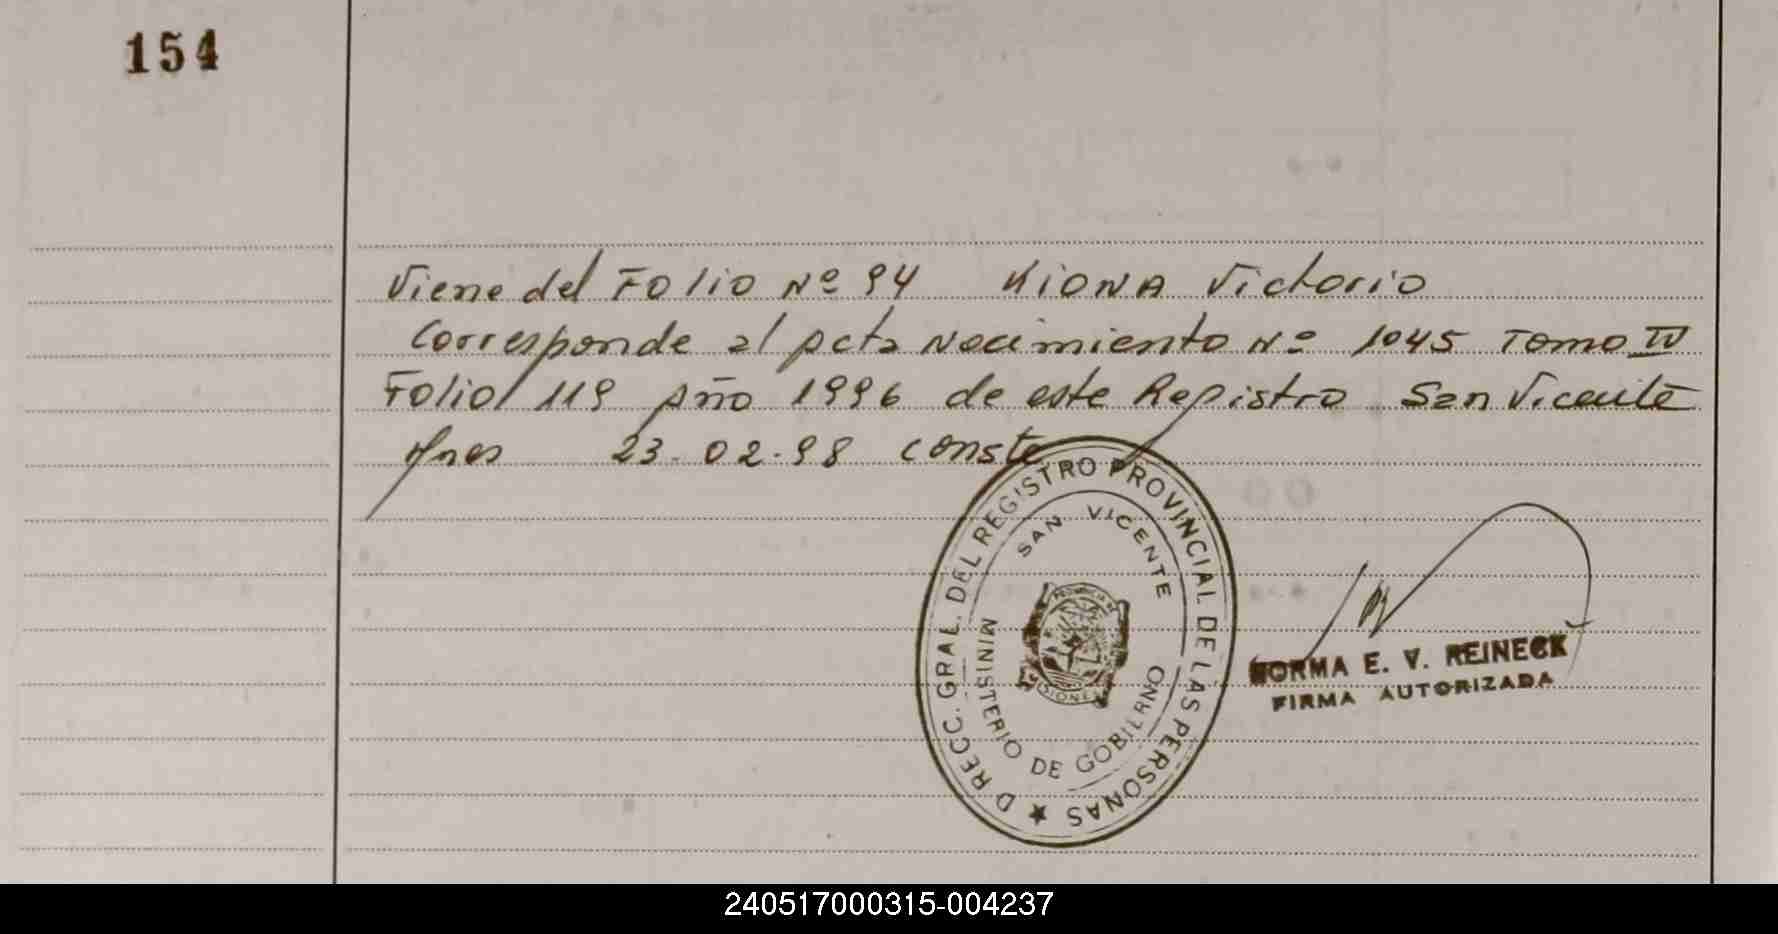 154
Viene del Folio Nº 94 KIONA Victorio
Corresponde al Acta Nacimiento Nº 1045 Tomo IV
Folio 119 Año 1996 de este Registro San Vicente
Mnes 23-02-98 conste
DIRECC. GRAL. DEL REGISTRO PROVINCIAL DE LAS PERSONAS ★
SAN VICENTE
MINISTERIO DE GOBIERNO
NORMA E. V. REINECK
FIRMA AUTORIZADA
240517000315-004237